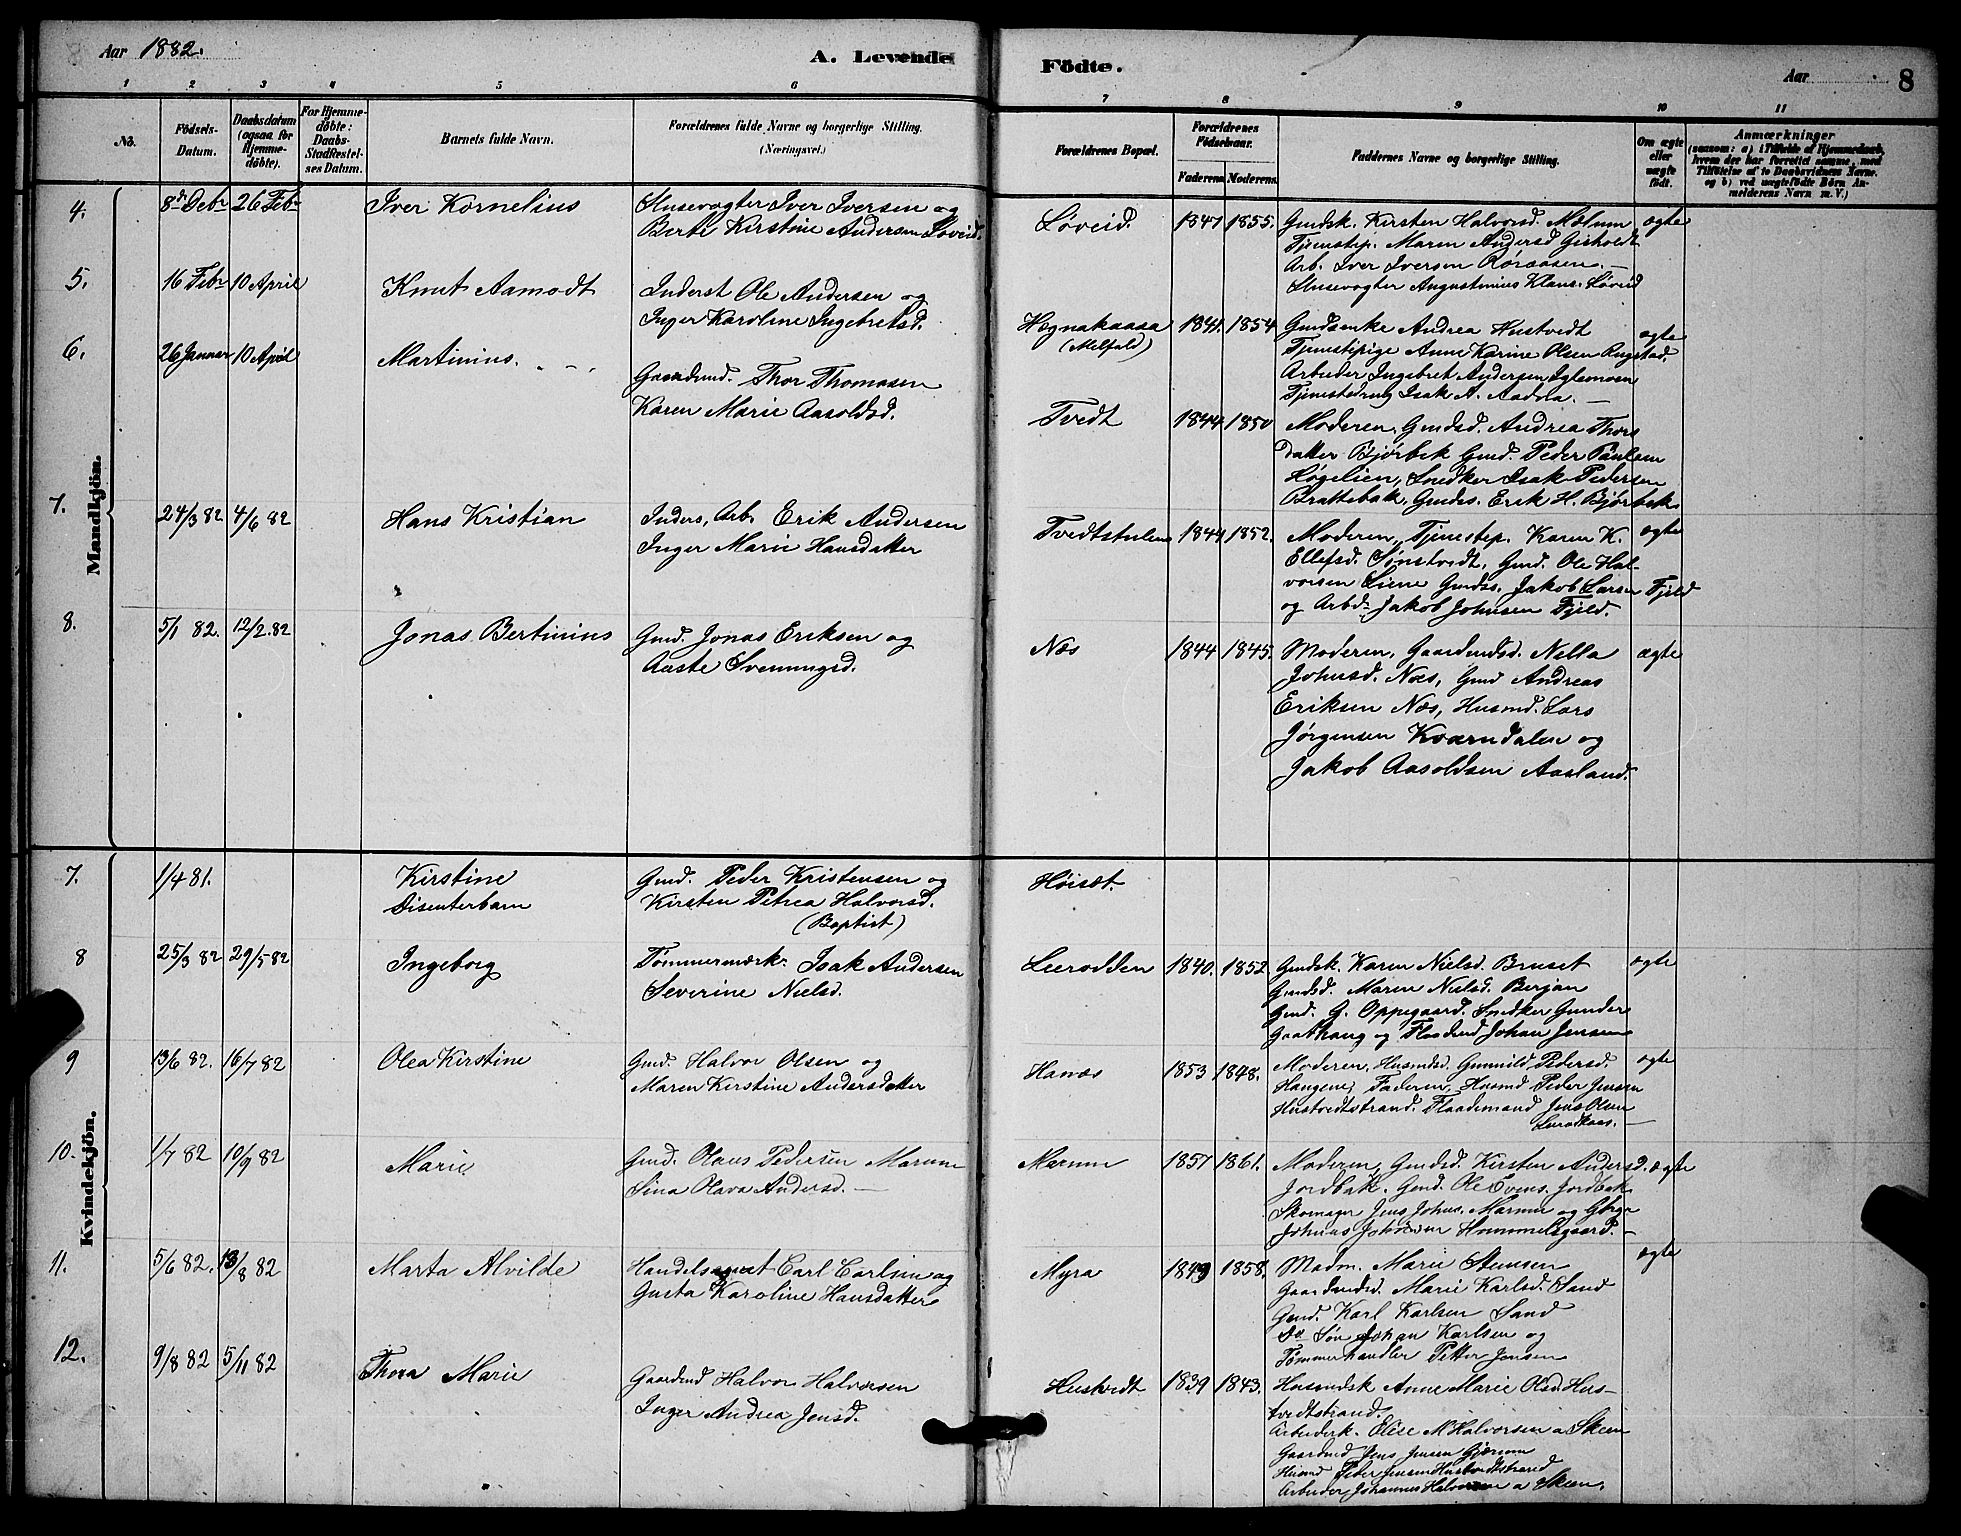 Aar 1882. A. Levende Födte. Aar 8
1 2 3 4 5 6 7 8 9 10 11
No.
Födsels-Datum.
Daabsdatum (ogsaa for Hjemme-döbte).
For Hjemme-döbte: Daabs-Stadfæstel-ses Datum.
Barnets fulde Navn.
Forældrenes fulde Navne og borgerlige Stilling. (Næringsvei.)
Forældrenes Bopæl.
Forældrenes Födselsaar.
Faderens. Moderens.
Faddernes Navne og borgerlige Stilling.
Om ægte eller uægte födt.
Anmærkninger
(saasom: a) i Tilfælde af Hjemmedaab, hvem der har forrettet samme, med Tilföielse af to Daabsvidners Navne. og b) ved uægtefödte Börn An-melderens Navn m. V.)
Mandkjön.
4. 8de Debr 26 Febr Iver Kornelius
Slusevogter Iver Iversen og
Berte Kirstine Andersen Løveid.
Løveid. 1847 1855.
Gmdsk. Kirsten Halvorsd. Mælum
Tjenestep. Maren Andersd Gisholdt
Arb. Iver Iversen Røraasen.
Slusevogter Augustinius Klaus. Løveid
ægte
5. 16 Febr 10 April Knut Aamodt
Inderst Ole Andersen og
Inger Karoline Ingebretsd.
Hegnakaasa (Melfald) 1841. 1854
Gmdsenke Andrea Hustvedt
Tjenestepige Anne Karine Olsen Rugstad.
Arbeider Ingebret Andersen Iglemoen
Tjenestedreng Isak A. Aadola.
ægte
6. 26 Januar 10 April Martinius.
Gaardmd. Thor Thomasen
Karen Marie Aasoldsd.
Tvedt 1844 1850
Moderen, Gmdsd. Andrea Thors
datter Bjørbek Gmd. Peder Paulsen
Høgelien, Snedker Isak Pedersen
Brattebæk, Gmds. Erik H. Bjørbæk
7. 24/3 82 4/6 82 Hans Kristian
Inders, Arb. Erik Andersen
Inger Marie Hansdatter
Tvedtstulen 1844 1852.
Moderen, Tjenestep. Karen K.
Ellefsd. Sønstvedt, Gmd. Ole Hal-
vorsen Liene Gmds. Jakob Larsen Fjeld
og Arbd. Jakob Johnsen Fjeld.
ægte
8. 5/1 82. 12/2.82 Jonas Bertinius
Gmd. Jonas Eriksen og
Aaste Svenningsd.
Næs 1844 1845.
Moderen, Gaardmdsd. Nella
Johnsd. Næs, Gmd Andreas
Eriksen Næs, Husmd. Lars
Jørgensen Kværndalen og
Jakob Aasoldsen Aasland.
ægte
Kvindekjön.
7. 1/4 81. Kirstine
Disenterbarn
Gmd. Peder Kristensen og
Kirsten Petrea Halvorsd.
(Baptist)
Høisæt.
8 25/3 82 29/5 82 Ingeborg
Tømmermærk. Isak Andersen
Severine Nielsd.
Leerodden 1840. 1852
Gmdsk. Karen Nielsd. Bruset
Gmdsd. Maren Nielsd. Berjan
Gmd. G. Oppegaard. Snedker Gunder
Gaathaug og Flaadmd Johan Jensen
ægte
9 13/6 82. 16/7 82 Olea Kirstine
Gmd. Halvor Olsen og
Maren Kirstine Andersdatter
Hanæs 1853 1848.
Moderen, Husmdsd. Gunnild Pedersd.
Haugene, Faderen, Husmd Peder Jensen
Hustvedtstrand. Flaademand Jens Olsen
ægte
10. 1/7 82 10/9 82 Marie
Gmd. Olaus Pedersen Marum
Sina Olava Andersd.
Marum 1857 1861.
Moderen, Gmdsd. Kirsten Andersd.
Jordbæk. Gmd. Ole Evens. Jordbæk
Skomager Jens Johns. Marum og
Johnsen Hummelsgaard.
ægte
11. 5/6 82. 13/8 82 Marta Alvilde
Handelsagent Carl Carlsen og
Gusta Karoline Hansdatter
Myra 1849 1858.
Madm. Marie Stensen
Gaardmdsd. Marie Karlsd. Sand
Gmd. Karl Karlsen Sand
Ds Søn Johan Karlsen og
Tømmerhandler Petter Jensen
ægte
12. 9/8 82 5/11 82 Thora Marie
Gaardmd Halvor Halvorsen
Inger Andrea Jensd.
Hustvedt 1839 1843.
Husmdsk Anne Marie Olsd. Hus-
tvedtstrand.
Arbeiderk. Elise M Halvorsen a Skien
Gaardmd Jens Jensen Gjerum
Husmd Peder Jensen Hustvedtstrand
Arbeider Johannes Halvorsen a Skien.